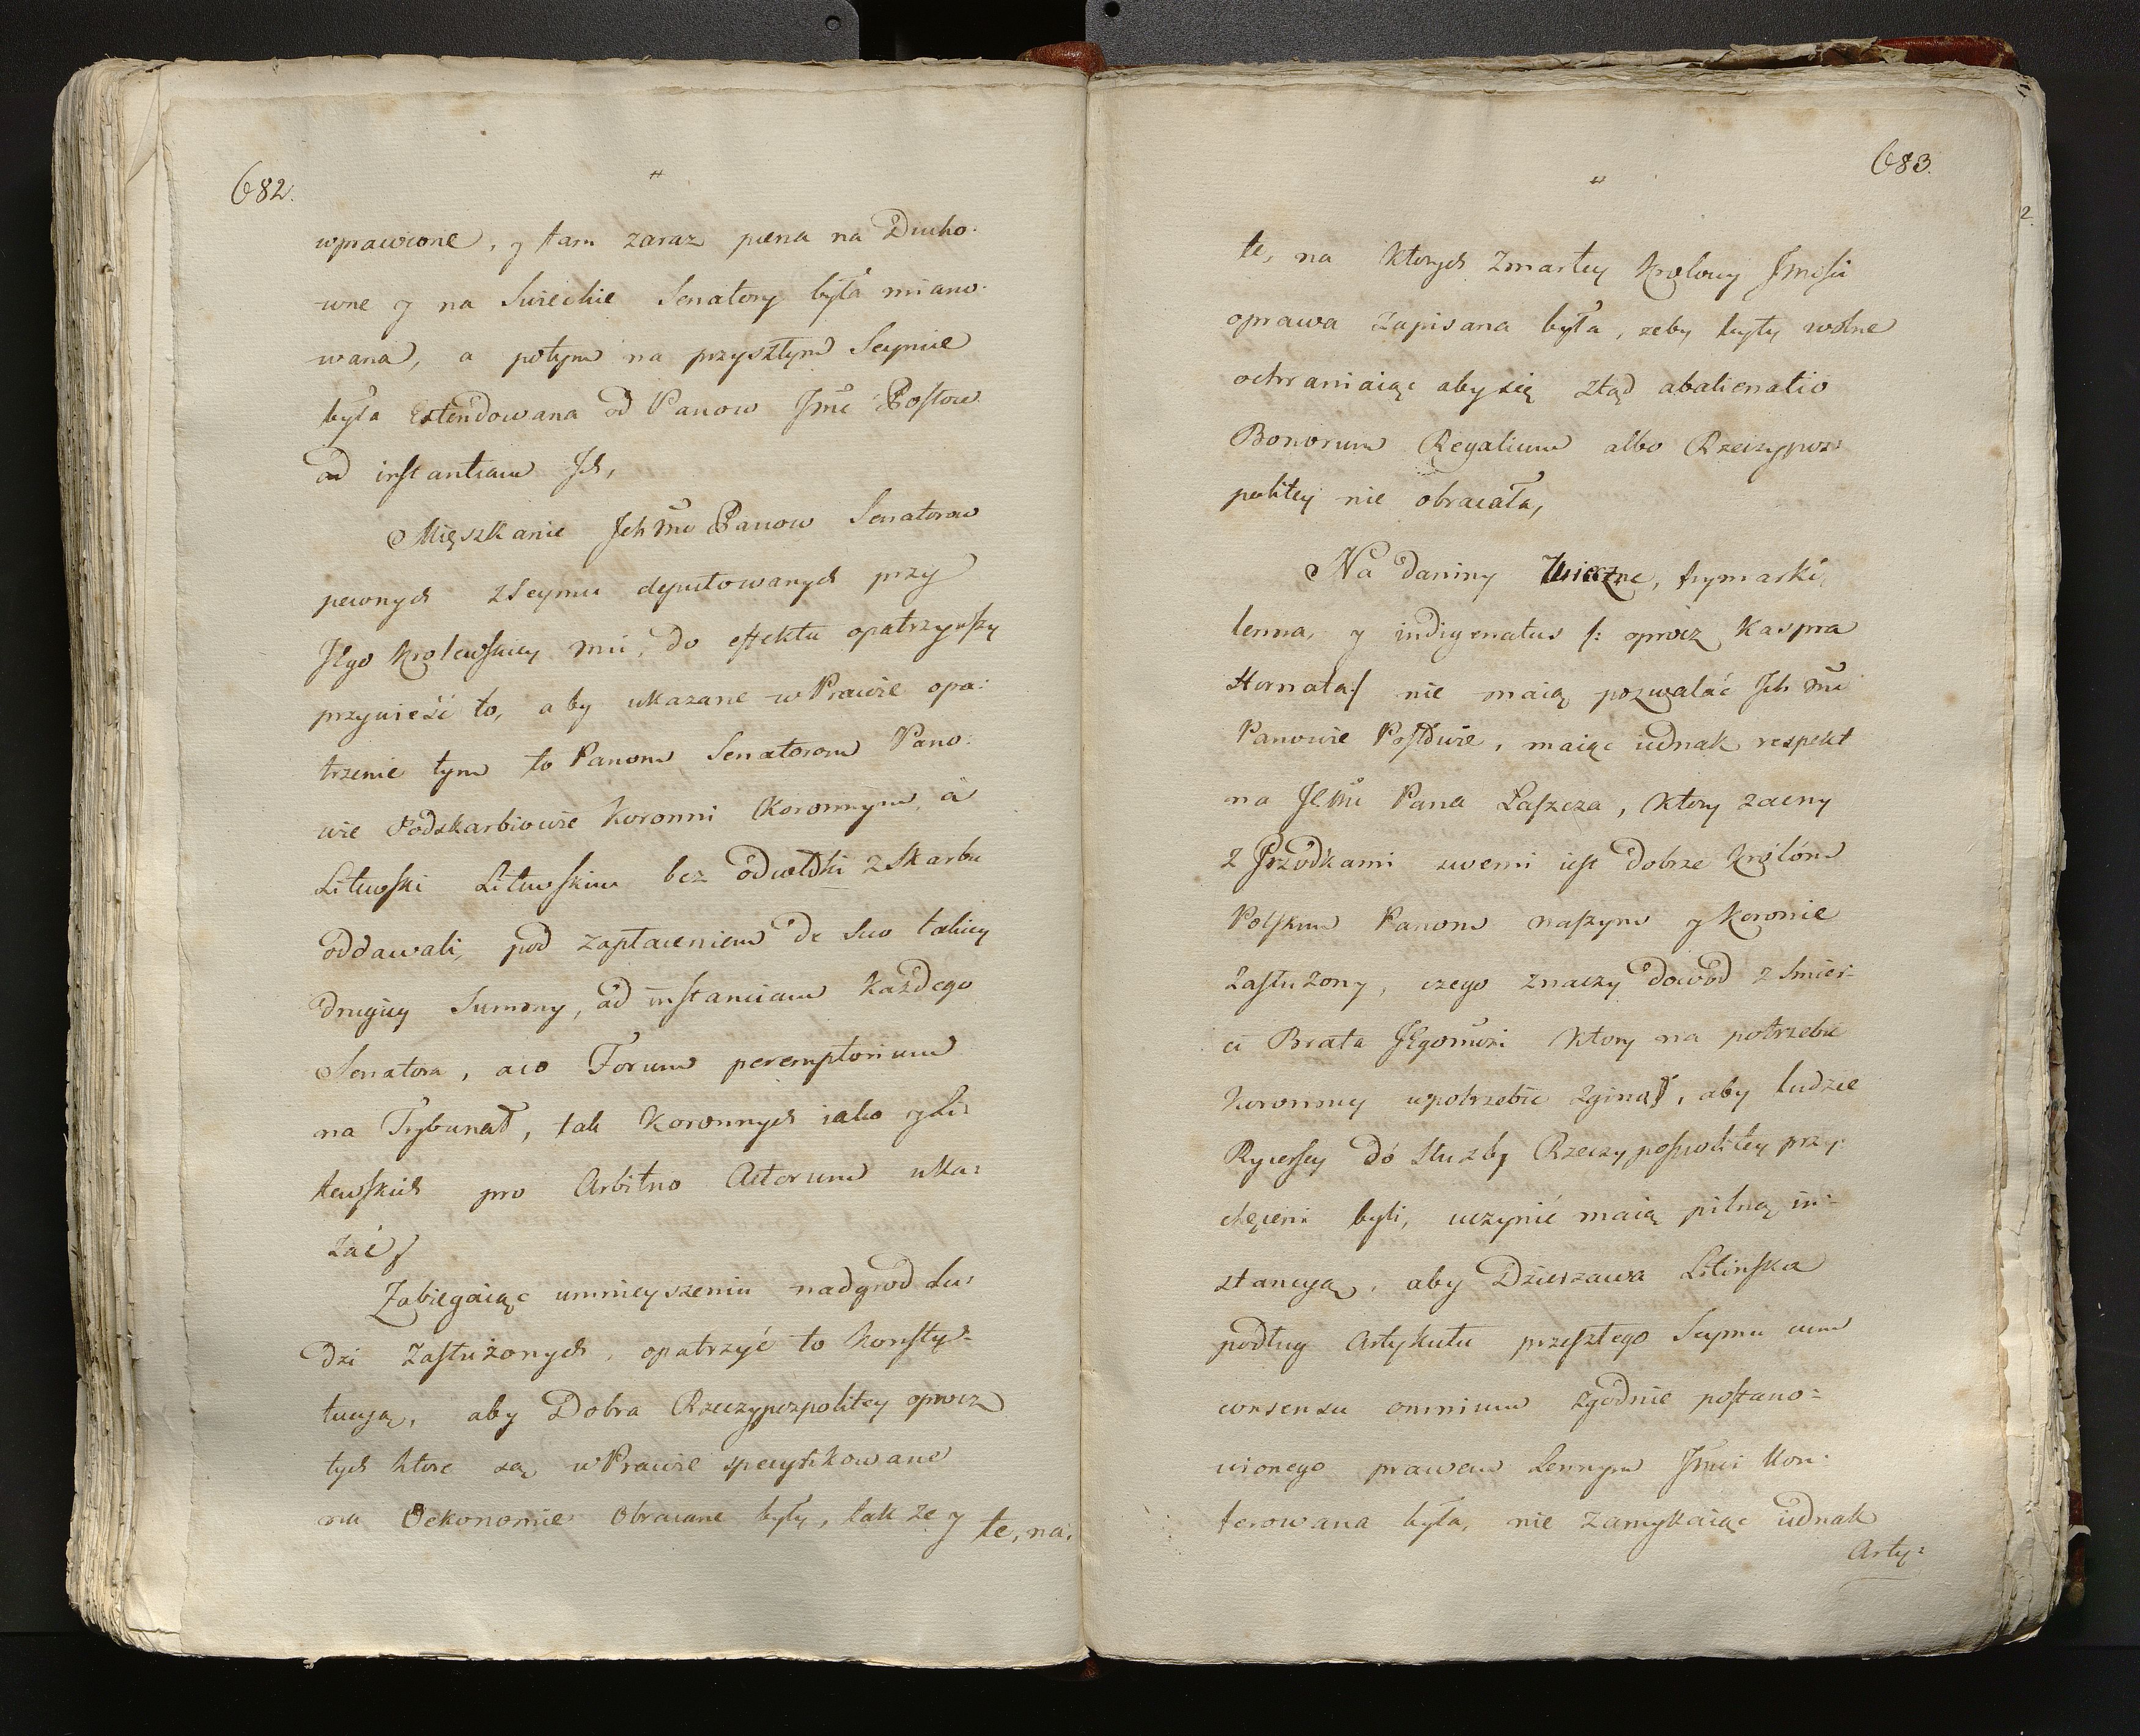 682.
wprawione, y tam zaraz pena na Ducho-
wne y na Swieckie Senatory była miano-
wana, a potym na przyszłym Seymie
była Extendowana od Panow Jmc Posłow
ad instantiam Ich,
Mięszkanie Ich Mc Panow Senatorow
pewnych z Seymu deputowanych przy
Jego Krolewskiey Mci, do effektu opatrzywszy
przywieść to, aby ukazane w Prawie opa:
trzenie tym to Panom Senatorom Pano:
wie Podskarbiowie Koronni Koronnym, a
Litewski Litewskim bez odwłoki z Skarbu
oddawali, pod zapłaceniem de suo takiey
drugiey Summy, ad instanciam każdego
Senatora, a to Forum peremptorium
na Trybunał, tak Koronnych iako y Li:
tewskich pro Arbitrio Actorum uka:
zać,
Zabiegaiąc umnieyszeniu nadgrod Lu:
dzi zasłużonych, opatrzyć to konsty-
tucyą, aby Dobra Rzeczypozpolitey oprocz
tych ktore są w Prawie specyfikowane
na Oekonomie obracane były, także y te, na.
683.
2.
te, na ktorych zmarłey Krolowy Jmości
oprawa zapisana była, zeby były wolne
ochraniaiąc aby się ztąd abalienatio
Bonorum Regalium albo Rzeczypoz:
politey nie obracała,
Na daniny wieczne, frymarki,
lenna, y indigenatus /: oprocz Kaspra
Hornata :/ nie maią pozwalać Ich Mc
Panowie Posłowie, maiąc iednak respekt
na Je Mc Pana Laszcza, ktory zacny
z Przodkami swemi iest dobrze Królóm
Polskim Panom naszym y Koronie
zasłużony, czego znaczny dowod z smier-
ci Brata Jegomści ktory na potrzebie
Koronney w potrzebie zginął, aby ludzie
Rycerscy do służby Rzeczypospolitey przy:
chęceni byli, uczynić maią pilną in-
stancyą, aby Dzierzawa Litinska
podług Artykułu przeszłego Seymu cum
consensu omnium zgodnie postano-
wionego prawem Lennym Jmci kon:
ferowana była, nie zamykaiąc iednak
Arty: